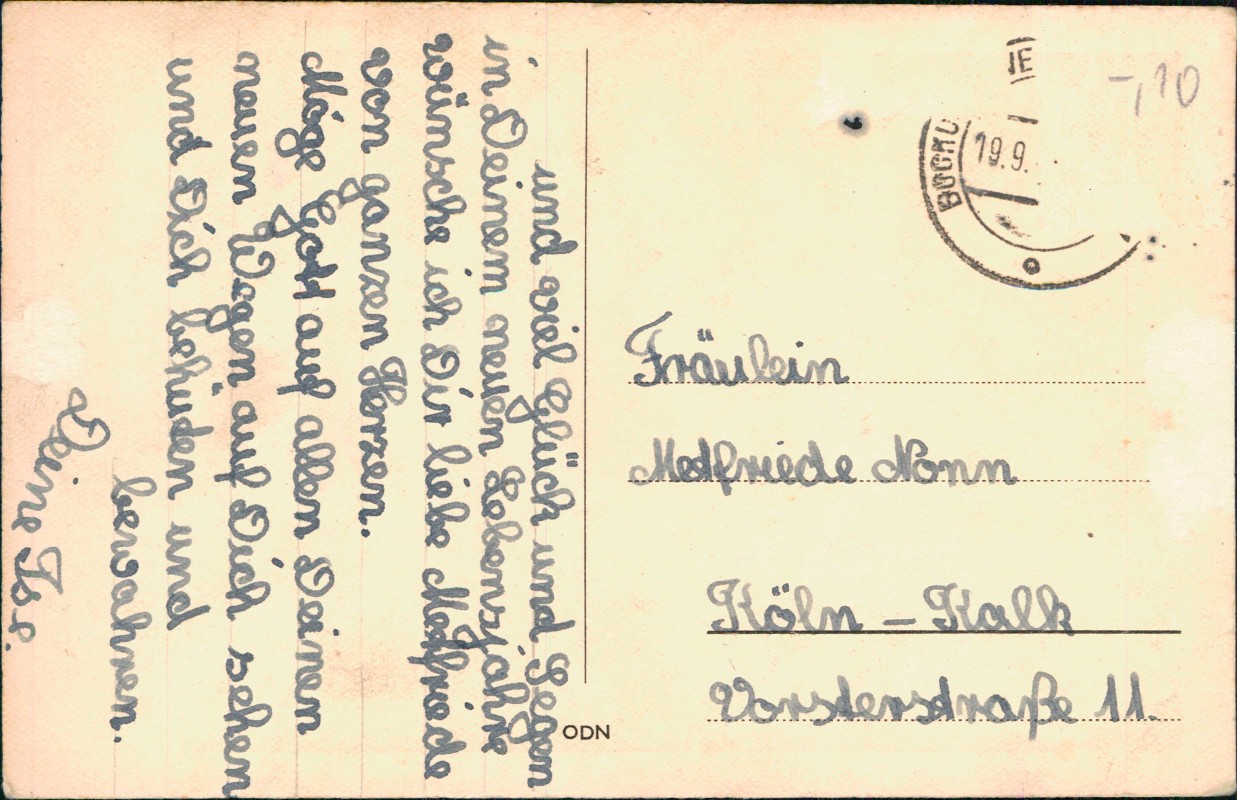 und viel Glück und Segen
in Deinem neuen Lebensjahre
wünsche ich Dir liebe Metfriede
von ganzen Herzen.
Möge Gott auf allen Deinen
neuen Wegen auf Dich sehen
und Dich behüten und
bewahren.
Deine
-,10
BOCHU
19.9.
Fräulein
Metfriede Nonn
Köln - Kalk
Vorsterstraße 11.
ODN